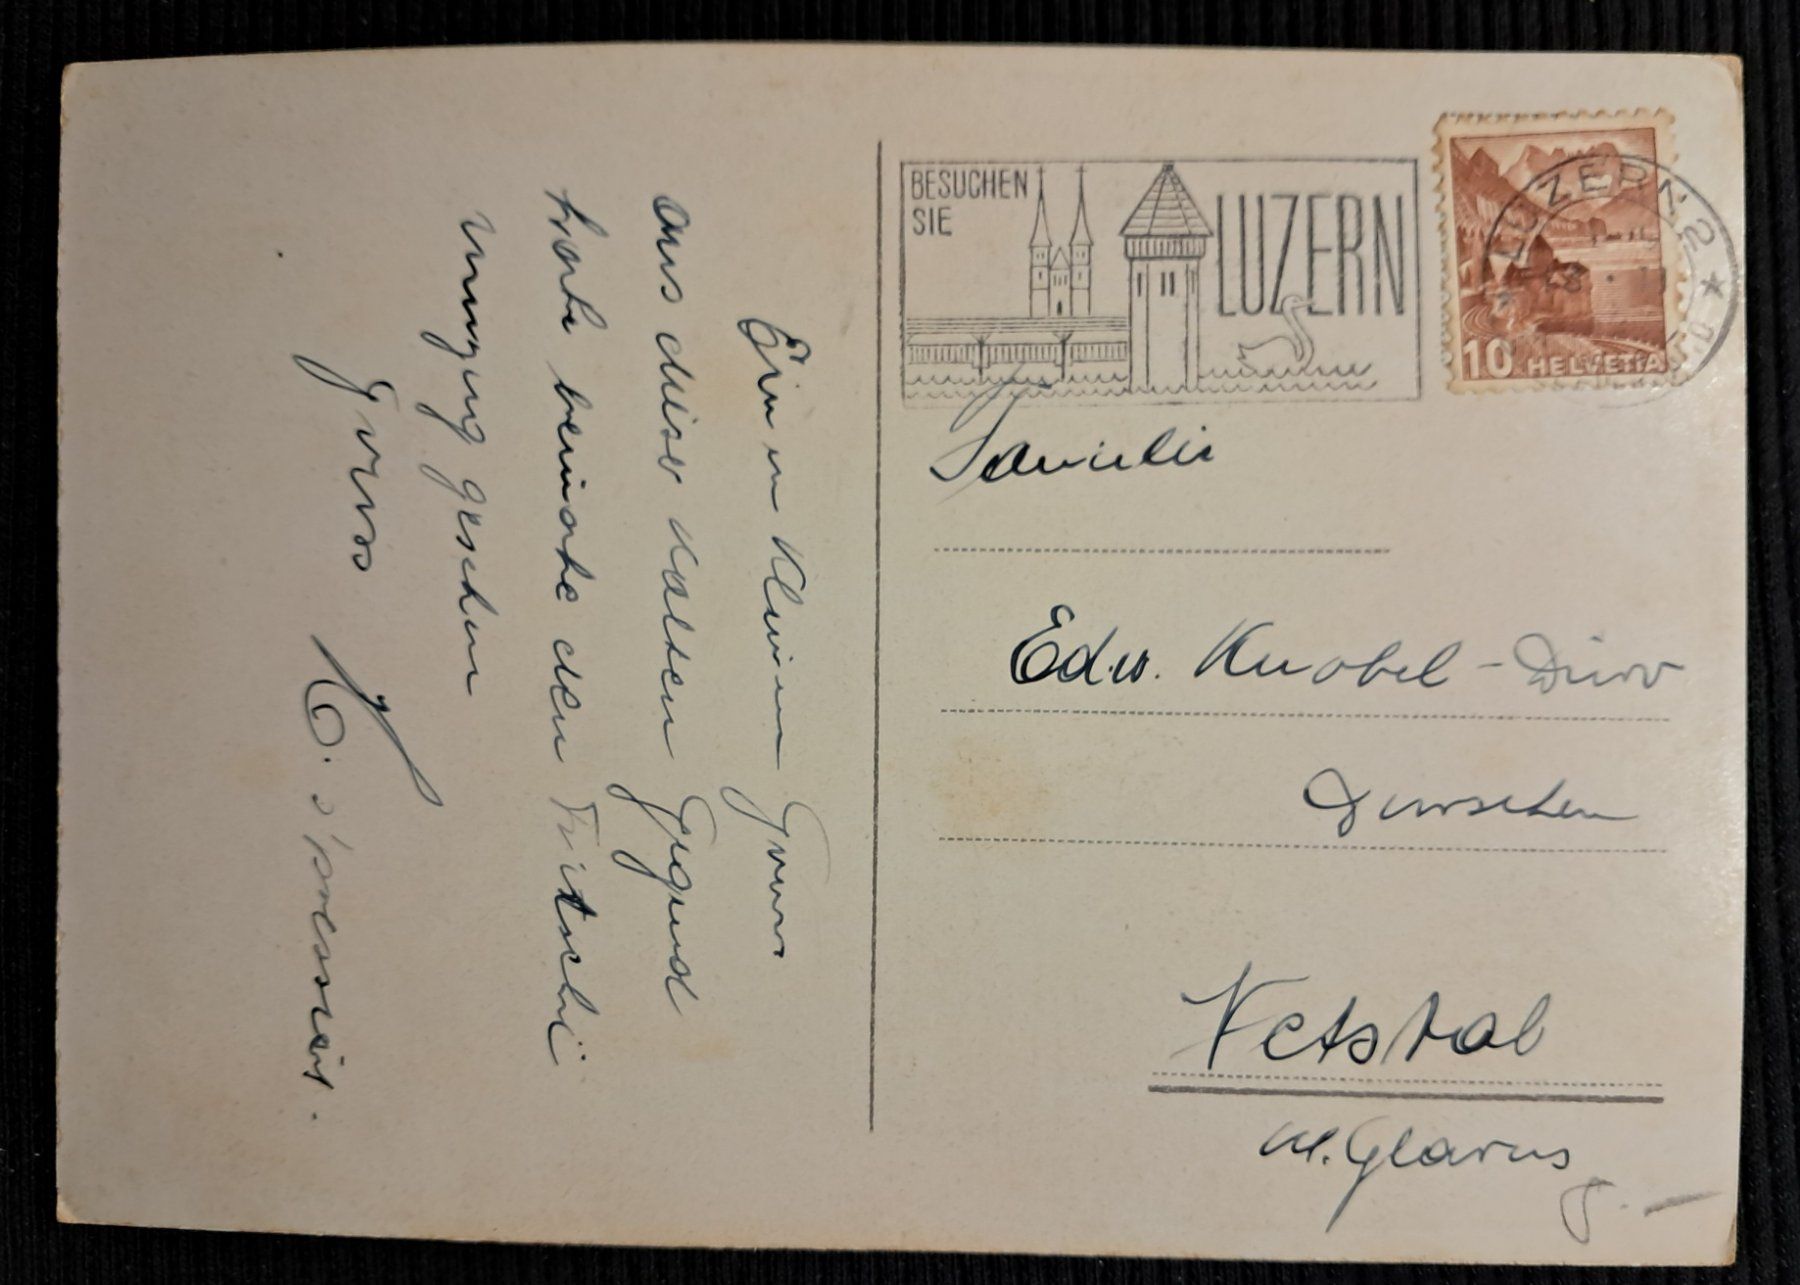 Einen kleinen Gruss
aus dieser kalten Gegend
hatte beinahe den Fritschi
umzug gesehen
Gruss
BESUCHEN
SIE
LUZERN
LUZERN 2
10 HELVETIA
Familie
Edw. Knobel-Dürr
Netstal
Kt. Glarus